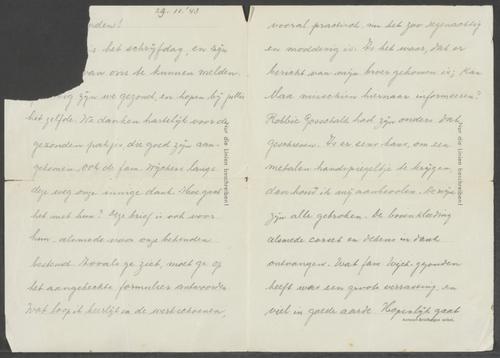 29.11.'43
nden!
is het schrijfdag, en zijn
van ons te kunnen melden.
zijn we gezond, en hopen bij jullie
het zelfde. We danken hartelijk voor de
gezonden pakjes, die goed zijn aan-
gekomen. Ook de fam. Wijckers langs
deze weg onze innige dank. Hoe gaat
het met hun? Deze brief is ook voor
hun alsmede voor onze bekenden
bestemd. Zooals ge ziet, moet ge op
het aangehechte formulier antwoorden.
Wat loop ik heerlijk in de werkschoenen,
Nur die Linien beschreiben!
vooral practisch, nu het zoo regenachtig
en modderig is. Is het waar, dat er
bericht van mijn broer gekomen is; kan
Maa misschien hiernaar informeeren?
Robbie Gosschalk had zijn ouders dat
geschreven. Is er soms kans, om een
metalen handspiegeltje te krijgen,
dan houd ik mij aanbevolen. De mijne
zijn alle gebroken. De bovenkleding
alsmede corset en dekens in dank
ontvangen. Wat fam. Wijck. gezonden
heeft was een groote verrassing, en
viel in goede aarde. Hopenlijk gaat
Nur die Linien beschreiben!